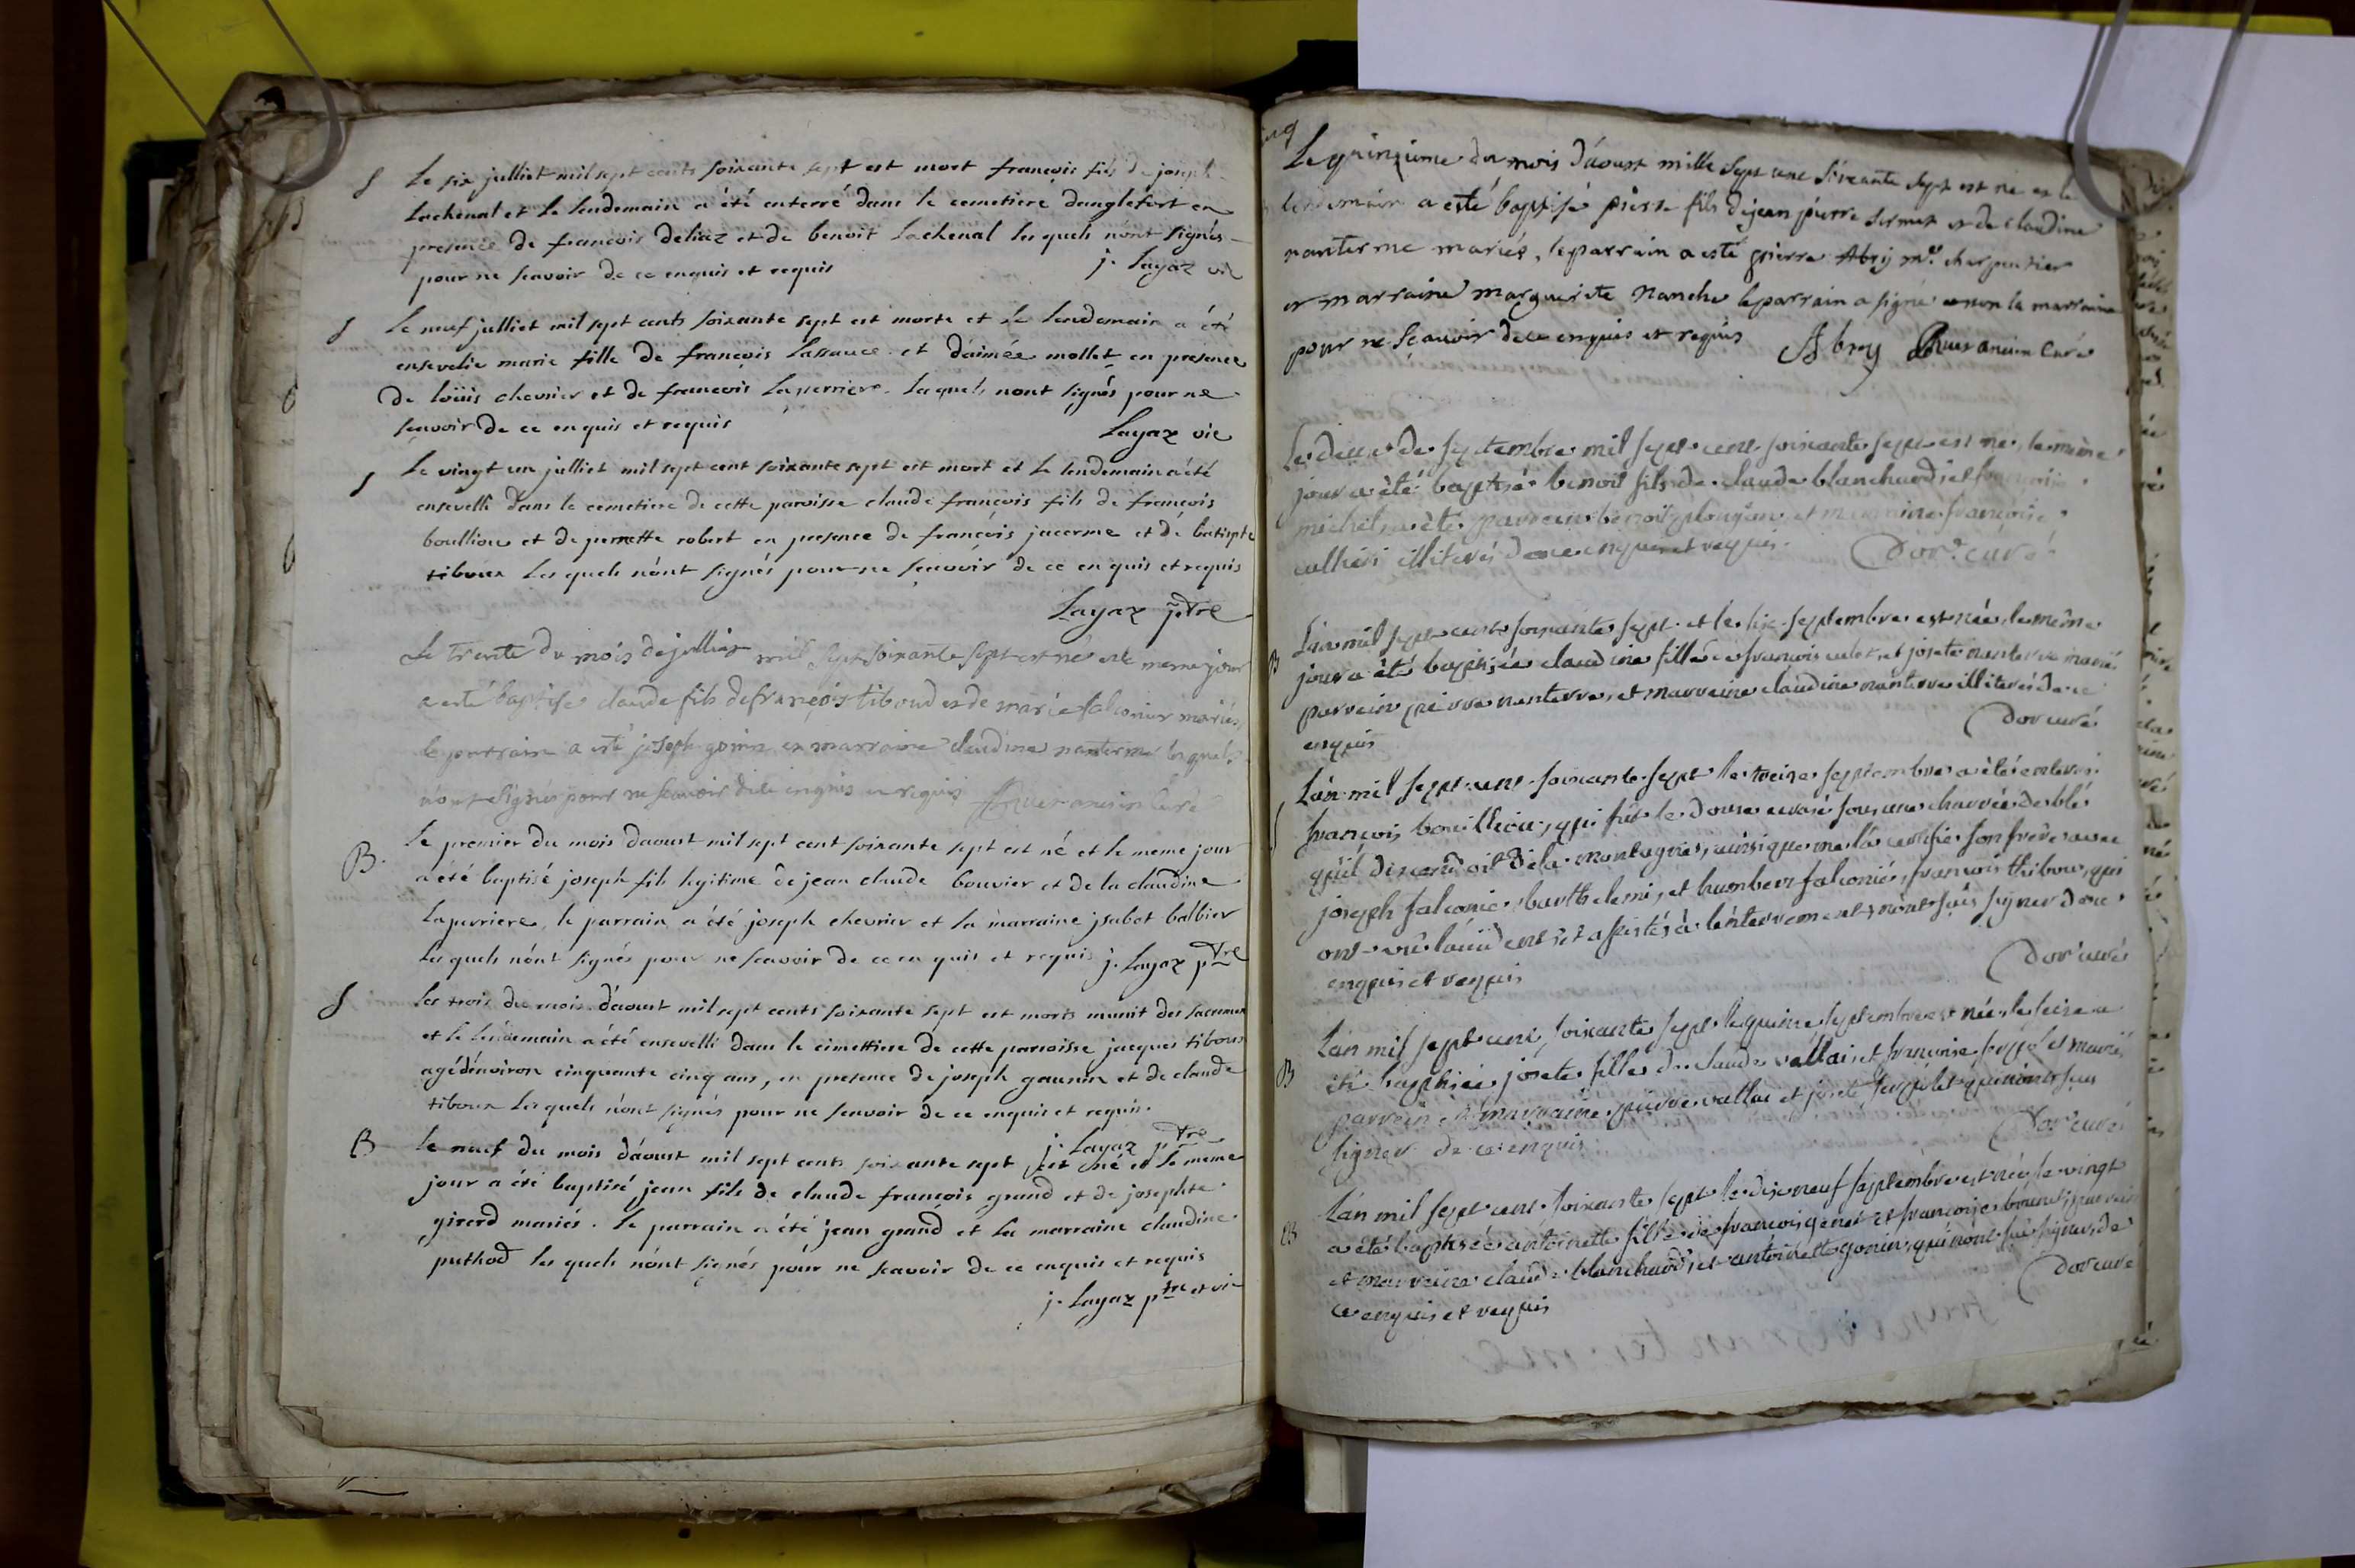 S Le six julliet mil sept cents soixante sept est mort françois fils de joseph
Lachenal et le lendemain a été enterré dans le cemetiere danglefort en
presence de francois deliaz et de benoit Lachenal les quels nónt signés
pour ne scavoir de ce enquis et requis j. Layaz vic
S Le neuf julliet mil sept cents soixante sept est morte et le lendemain a été
ensevelie marie fille de françois Lassauce et daimée mollet en presence
de loüis chevrier et de francois Laperriere Lesquels nont signés pour ne
scavoir de ce enquis et requis Layaz vic
S Le vingt un julliet mil sept cent soixante sept est mort et le lendemain a été
ensevelli dans le cemetiere de cette paroisse claude françois fils de francois
boulliou et de pernette robert en presence de françois jacerme et de batispte
tiboux Les quels nónt signés pour ne sçavoir de ce enquis et requis
Layaz ptre
Le trente du mois de julliet mil sept soixante sept est né et le meme jour
a esté baptisé claude fils de françois tiboud et de marie falconier mariés,
le parrain a esté joseph gonin et marraine claudine nanterme lesquels
nont signés pour ne scavoir de ce enquis et requis ancien curé
B. Le premier du mois daoust mil sept cent soixante sept est né et le meme jour
a été baptisé joseph fils legitime de jean claude bouvier et de la claudine
Laperriere, le parrain a été joseph chevrier et la marraine jsabot balbier
Les quels nónt signés pour ne scavoir de ce en quis et requis j. Layaz ptre
S Les trois du mois dáoust mil sept cents soixante sept est morts munit des sacremen
et le lendemain a été ensevelli dans le cimettiere de cette parroisse jacques tiboux
agé dénviron cinquante cinq ans, en presence de joseph gaunin et de claude
tiboux Les quels nónt signés pour ne scavoir de ce enquis et requis.
j. Layaz ptre
B Le neuf du mois dáoust mil sept cents soixante sept est né et le meme
jour a été baptisé jean fils de claude françois grand et de josephte
girerd mariés. Le parrain a été jean grand et la marraine claudine
puthod les quels nónt signés pour ne scavoir de ce enquis et requis
j. Layaz ptre et vic
Le quinzieme du mois dáoust mille sept cent soixante sept est né et le
lendemain a esté baptisé pierre fils de jean pierre sermet et de claudine
nanterme mariés, le parrain a esté pierre Abry me charpentier
et marraine marguerite nanche le parrain a signé et non la marraine
pour ne scavoir de ce enquis et requis Abry ancien curé
Le deux de septembre mil sept cent soixante sept est né, le même
jour a été baptisé benoit fils de claude blanchard, et
michel, a été parrein benoit et marraine françoise
illiterés de ce enquis et requis. Dor curé
B Lán mil sept cent soixante sept et le six septembre est née, le même
jour a été baptisée claudine fille de françois culet, et josete nanterme mariés
parrein pierre nanterme, et marreine claudine nanterme illiterés de ce
enquis Dor curé
S Lán mil sept cent soixante sept le treize septembre a été enterré
françois bouilliou, qui fut le douse ecrasé sous une charrée de blé
qu'il descendoit de la montagne, ainsi que me la certifié son frère avec
joseph falconié, barthelemi, et humbert falconié, françois thiboux, qui
ont vû laccident et assistés à l'enterrement, nónt sçus signer de ce
enquis et requis Dor curé
B Lán mil sept cent soixante sept le quinze septembre est née, le seize a
été baptisée josete fille de claude vallai et françoise mariés
parrein et marraine, pierre vallai et josete qui nónt sçus
signer de ce enquis Dor curé
B Lán mil sept cent soixante sept le dix neuf septembre est née, le vingt
a été baptisée antoinette fille de francois et francoise parrein
et marreine claude blanchard, et antoinette gonin, qui nont sçu signer, de
ce enquis et requis Dor curé